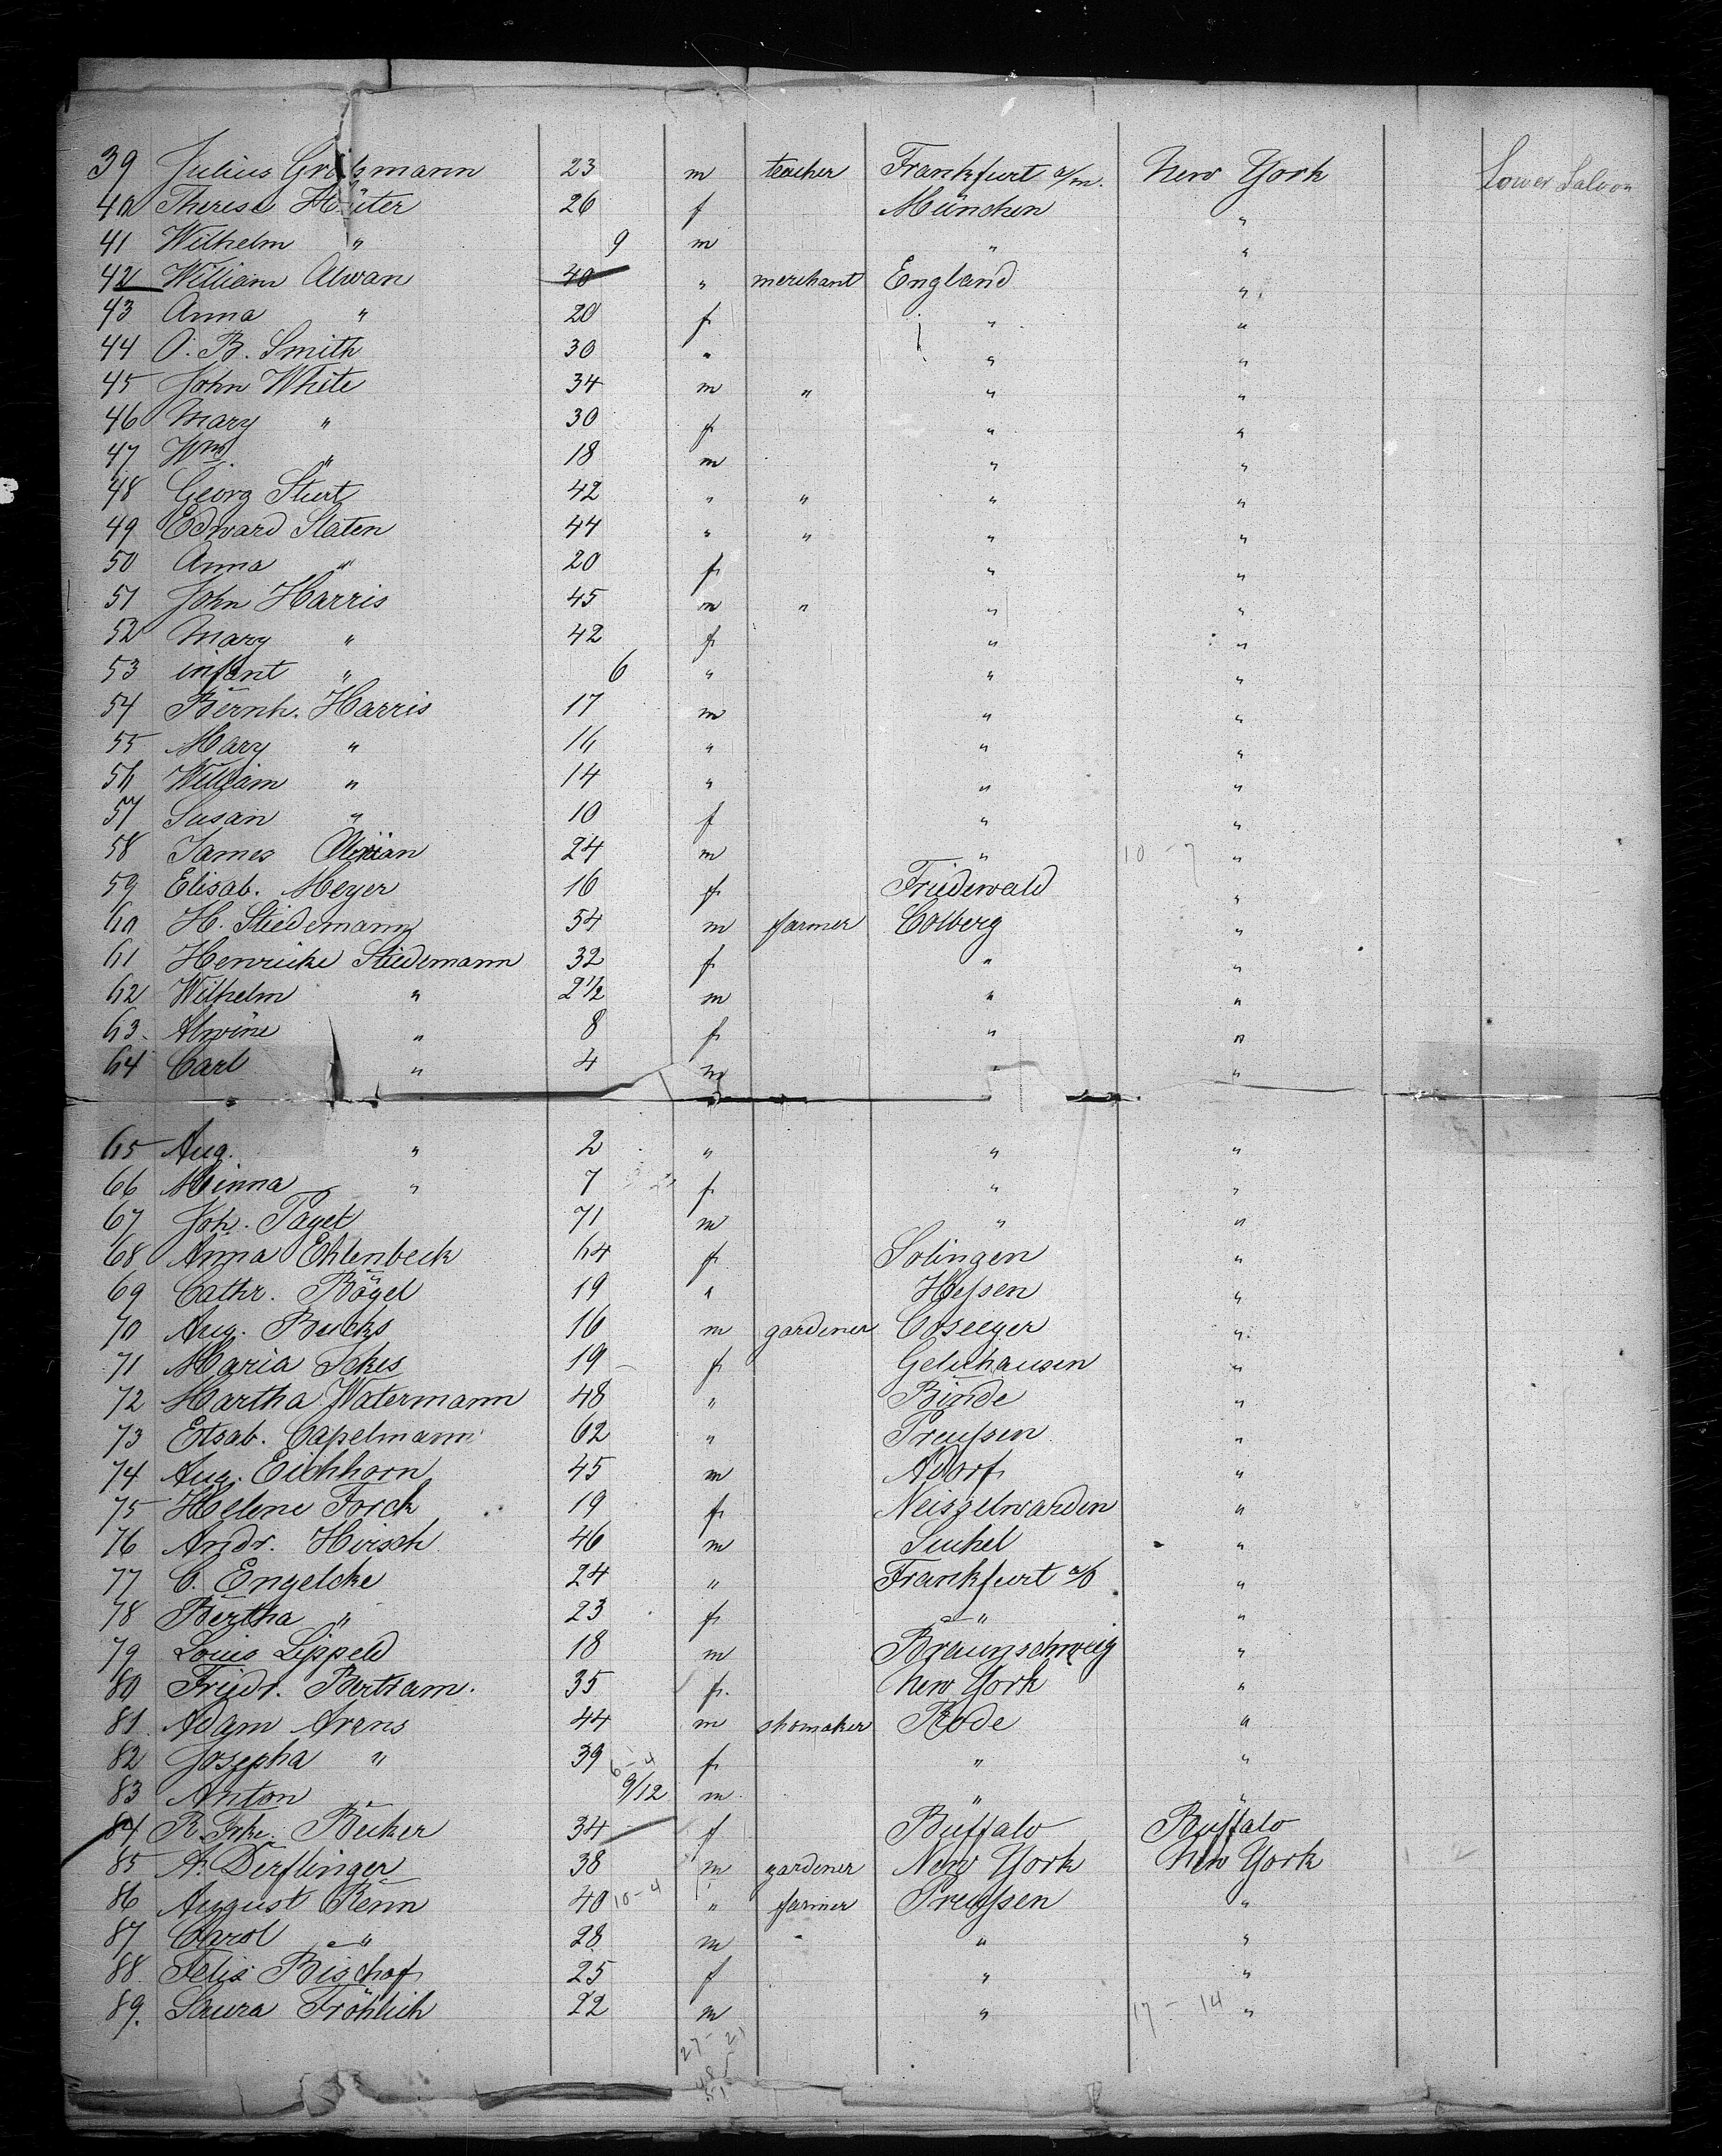 39 Julius Großmann 23 m teacher Frankfurt a/m. New York Lower Saloon
40 Therese Hüter 26 f München "
41 Wilhelm " 9 m " "
42 William Alwan 40 " merchant England "
43 Anna " 20 f " "
44 O. B. Smith 30 " " "
45 John White 34 m " " "
46 Mary " 30 f " "
47 Wm. " 18 m " "
48 Georg Sturt 42 " " " "
49 Edward Slaten 44 " " " "
50 Anna " 20 f " "
51 John Harris 45 m " " "
52 Mary " 42 f " "
53 infant " 6 " " "
54 Bernh. Harris 17 m " "
55 Mary " 16 " " "
56 William " 14 " " "
57 Susan " 10 f " "
58 James 24 m " 10 - 7 "
59 Elisab. Meyer 16 f Friedewald "
60 H. Stiedemann 54 m farmer Colberg "
61 Henricke Stiedemann 32 f " "
62 Wilhelm " 2 1/2 m " "
63. Alwine " 8 f " "
64 Carl " 4 m " "
65 Aug. " 2 " " "
66 Minna " 7 f " "
67 Joh. Paget 71 m " "
68 Anna Ehlenbeck 64 f Solingen "
69 Cathr. Bögel 19 " Hessen "
70 Aug. Bucks 16 m gardener Coseeger "
71 Maria Ickes 19 f Gelnhausen "
72 Martha Watermann 48 " Binde "
73 Elsab. Capelmann 62 " Preussen "
74 Aug. Eichhorn 45 m Adorf "
75 Helene Torck 19 f Neisselwarden "
76 Andr. Hirsch 46 m Suhel "
77 C. Engelcke 24 " Frankfurt a/O "
78 Bertha " 23 f " "
79 Louis Lippeld 18 m Braunschweig "
80 Friedr. Bertram. 35 f. New York "
81. Adam Arens 44 m shomaker Rode "
82 Josepha " 39 6-4 f " "
83 Anton 9/12 m " "
84 R. Frke. Becker 34 f Buffalo Buffalo
85 A. Derflinger 38 m gardener New York New York
86 August Renn 40 10-4 " farmer Preussen "
87 Carol " 28 m " " "
88 Felix Bischof 25 f " "
89. Laura Fröhlich 22 m " 17 - 14 "
27- 21
48
51